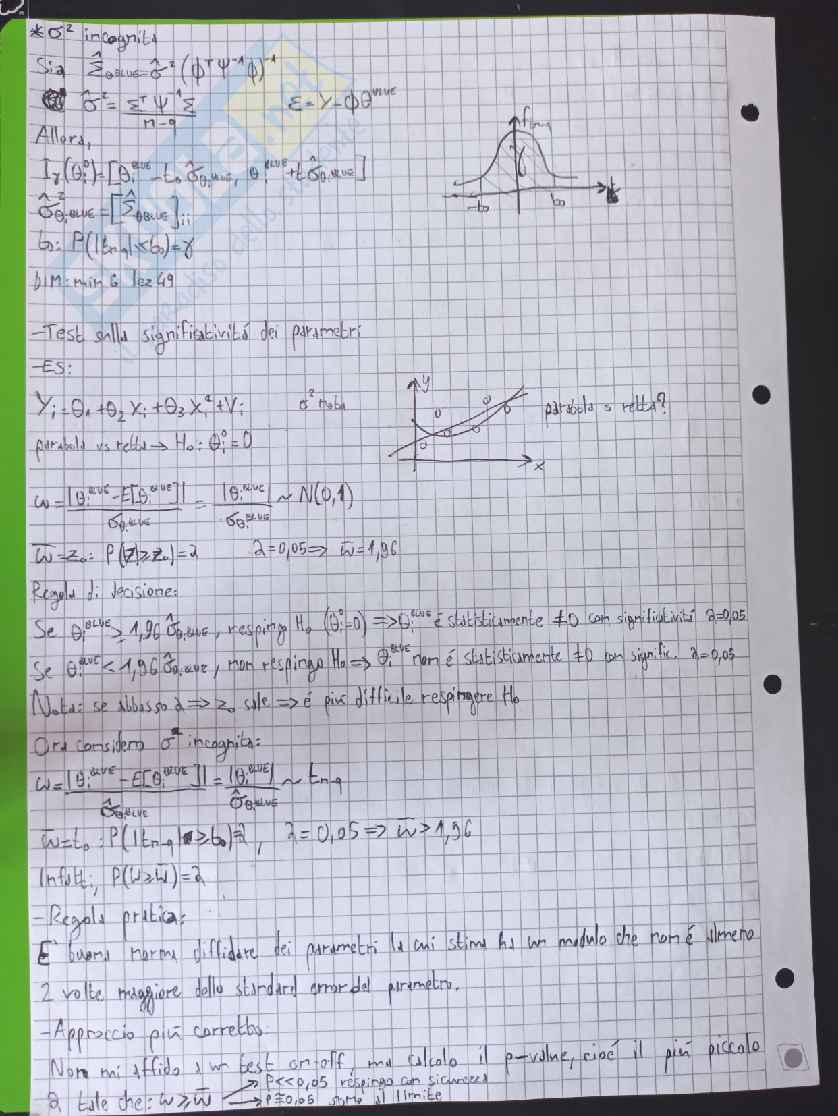 * σ² incognita
Sia Σ̂_θBLUE = σ̂² (Φᵀ Ψ⁻¹ Φ)⁻¹
σ̂² = εᵀ Ψ⁻¹ ε / n-q    ε = Y - Φθ^BLUE
Allora,
I_γ(θᵢ⁰) = [θᵢ^BLUE - t₀ σ̂_θᵢBLUE, θᵢ^BLUE + t₀ σ̂_θᵢBLUE]
-t₀ t₀
σ̂²_θᵢBLUE = [Σ̂_θBLUE]ᵢᵢ
t₀: P(|t_n-q| < t₀) = γ
DIM: min 6 lez 49
- Test sulla significatività dei parametri
- ES:
Yᵢ = θ₁ + θ₂ Xᵢ + θ₃ Xᵢ² + Vᵢ    σ² nota
y x parabola o retta?
parabola vs retta → H₀: θᵢ⁰ = 0
ω = |θᵢ^BLUE - E[θᵢ^BLUE]| / σ_θᵢBLUE = |θᵢ^BLUE| / σ_θᵢBLUE ~ N(0,1)
ω̄ = z₀: P(|z| ≥ z₀) = λ    λ = 0,05 => ω̄ = 1,96
Regola di decisione:
Se θᵢ^BLUE ≥ 1,96 σ̂_θᵢBLUE, respingo H₀ (θᵢ⁰ = 0) => θᵢ^BLUE é statisticamente ≠ 0 con significatività λ = 0,05
Se θᵢ^BLUE < 1,96 σ̂_θᵢBLUE, non respingo H₀ => θᵢ^BLUE non é statisticamente ≠ 0 con signific. λ = 0,05
Nota: se abbasso λ => z₀ sale => é piú difficile respingere H₀
Ora considero σ² incognita:
ω = |θᵢ^BLUE - E[θᵢ^BLUE]| / σ̂_θᵢBLUE = |θᵢ^BLUE| / σ̂_θᵢBLUE ~ t_n-q
ω̄ = t₀: P(|t_n-q| ≥ t₀) = λ, λ = 0,05 => ω̄ > 1,96
Infatti, P(ω ≥ ω̄) = λ
- Regola pratica:
E' buona norma diffidare dei parametri la cui stima ha un modulo che non é almeno
2 volte maggiore dello standard error del parametro.
- Approccio piú corretto:
Non mi affido a un test on-off, ma calcolo il p-value, cioé il piú piccolo
λ tale che: ω ≥ ω̄ → P << 0,05 respingo con sicurezza
→ P ≅ 0,05 sono al limite